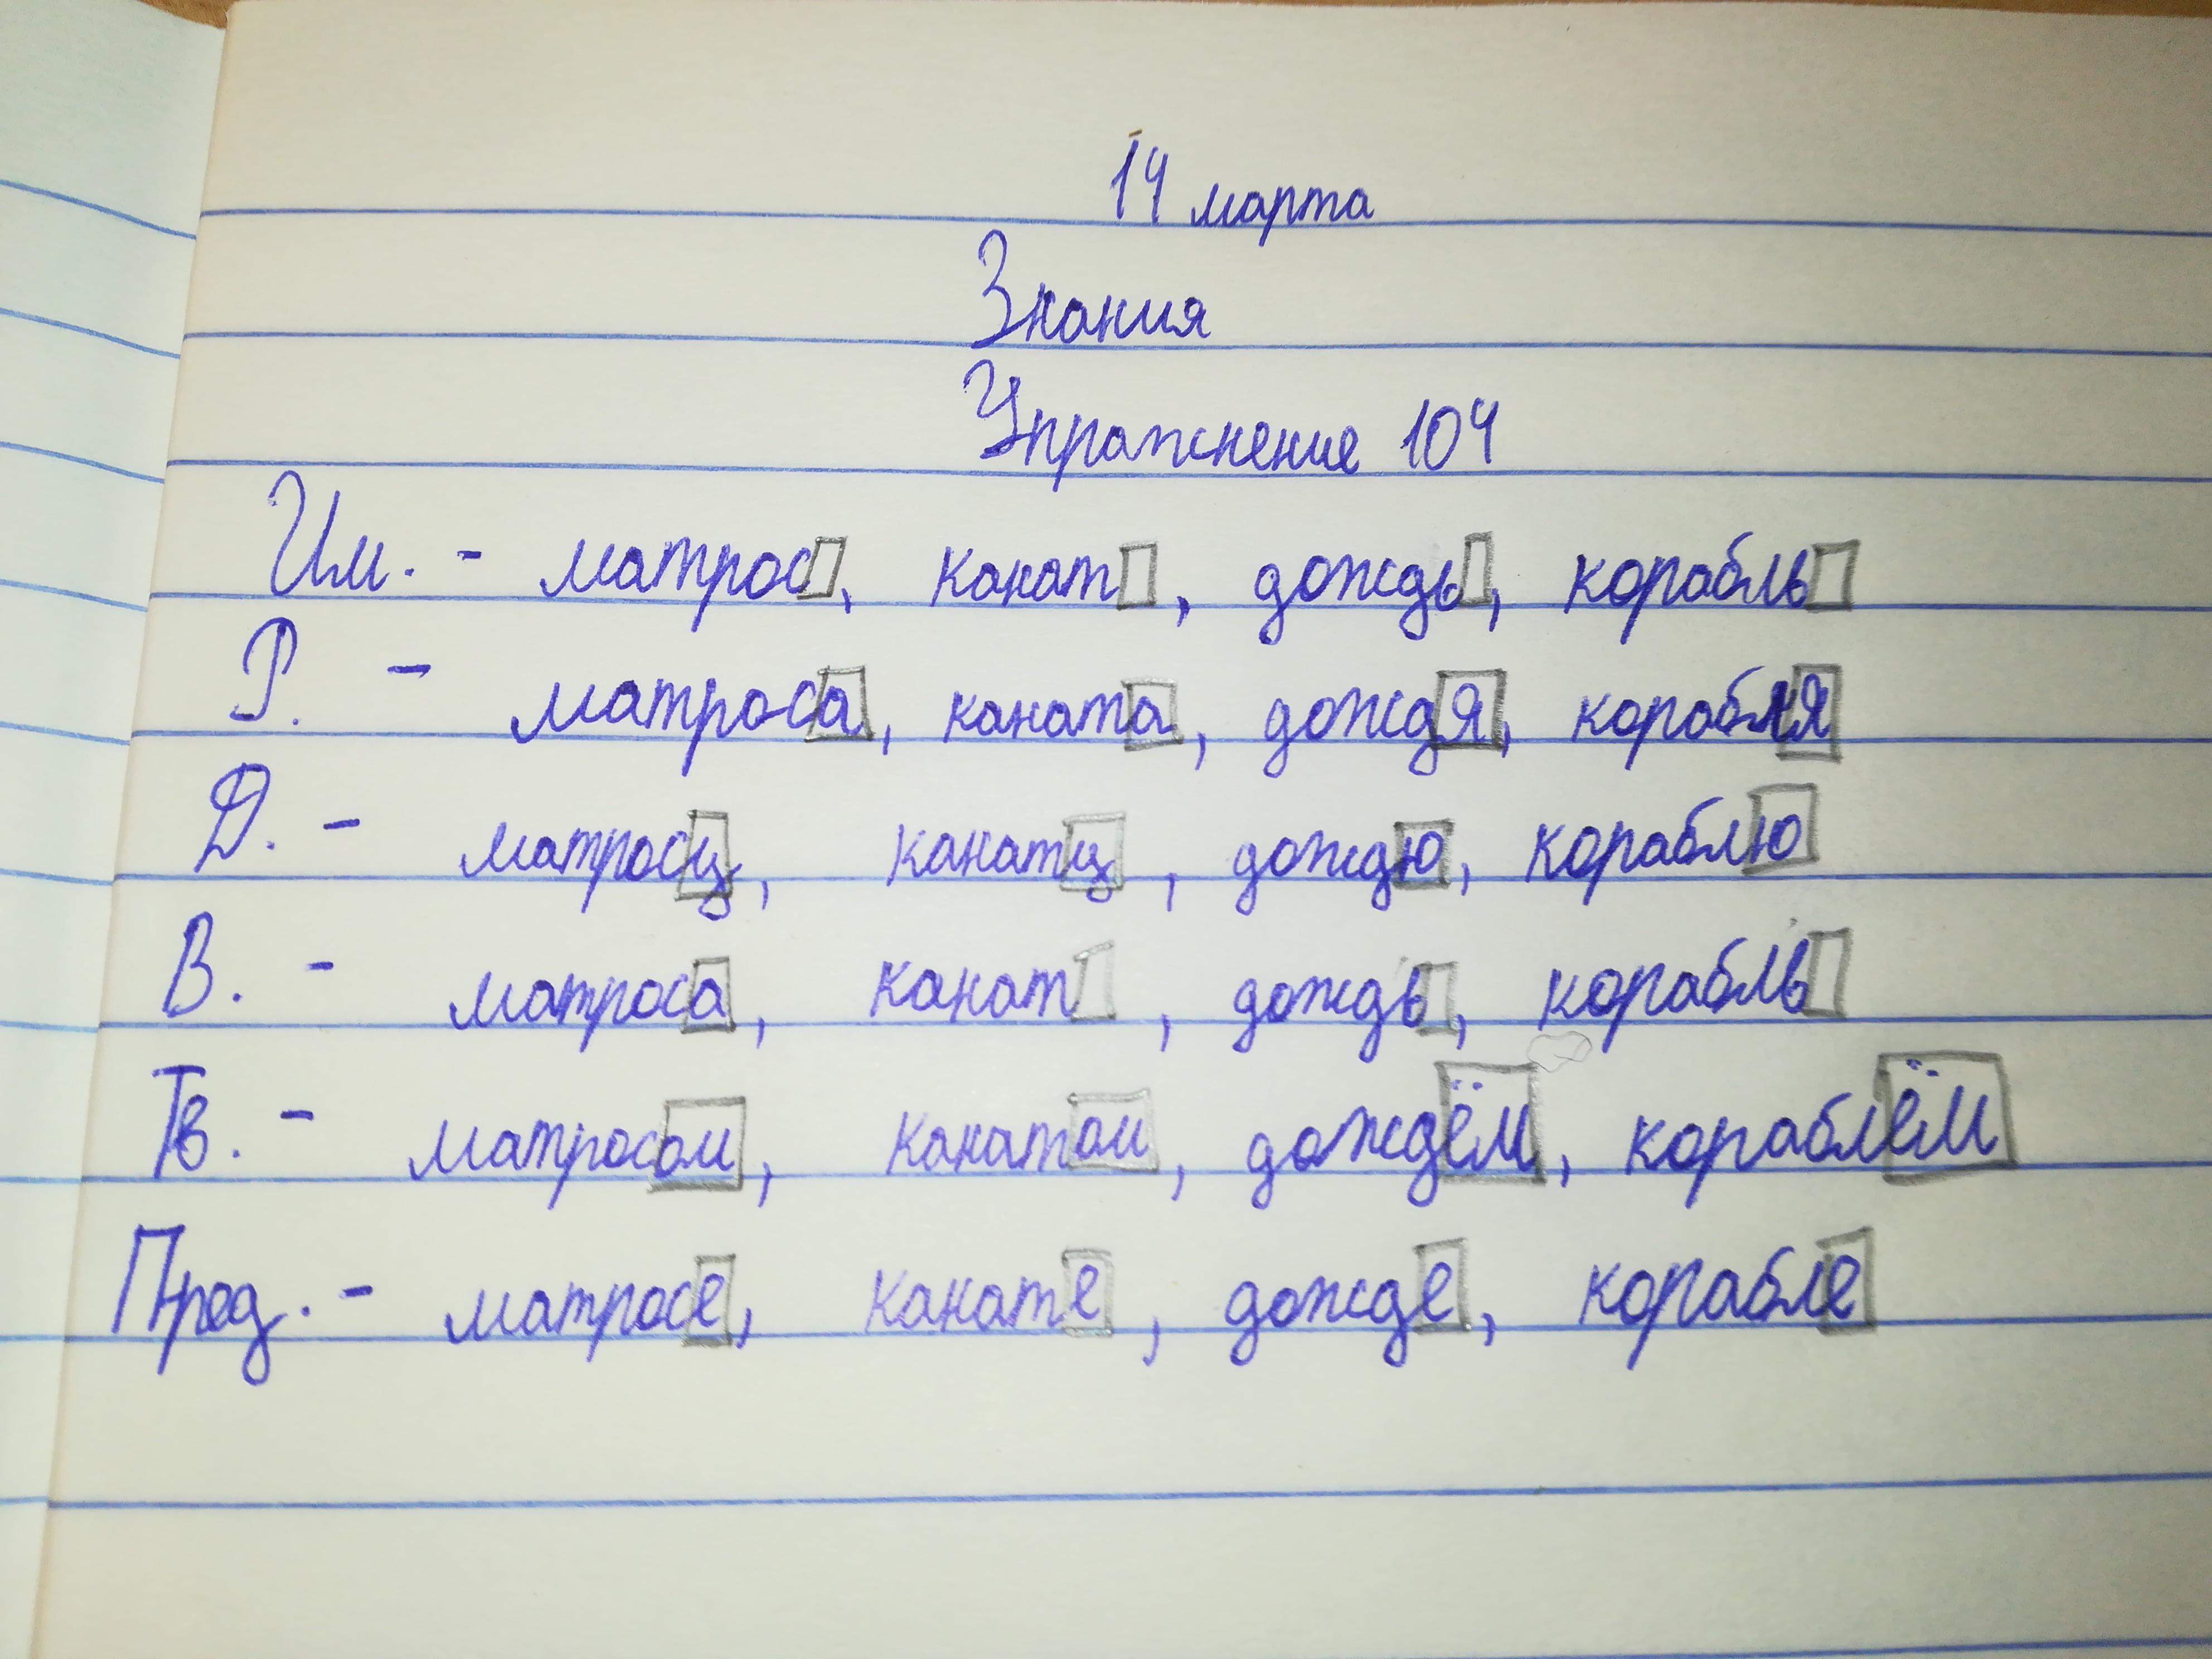 14 марта
Знания
Упражнение 104
Им. - матрос, канат, дождь, корабль
Р. - матроса, каната, дождя, корабля
Д. - матросу, канату, дождю, кораблю
В. - матроса, канат, дождь, корабль
Тв. - матросом, канатом, дождём, кораблём
Пред. - матросе, канате, дожде, корабле